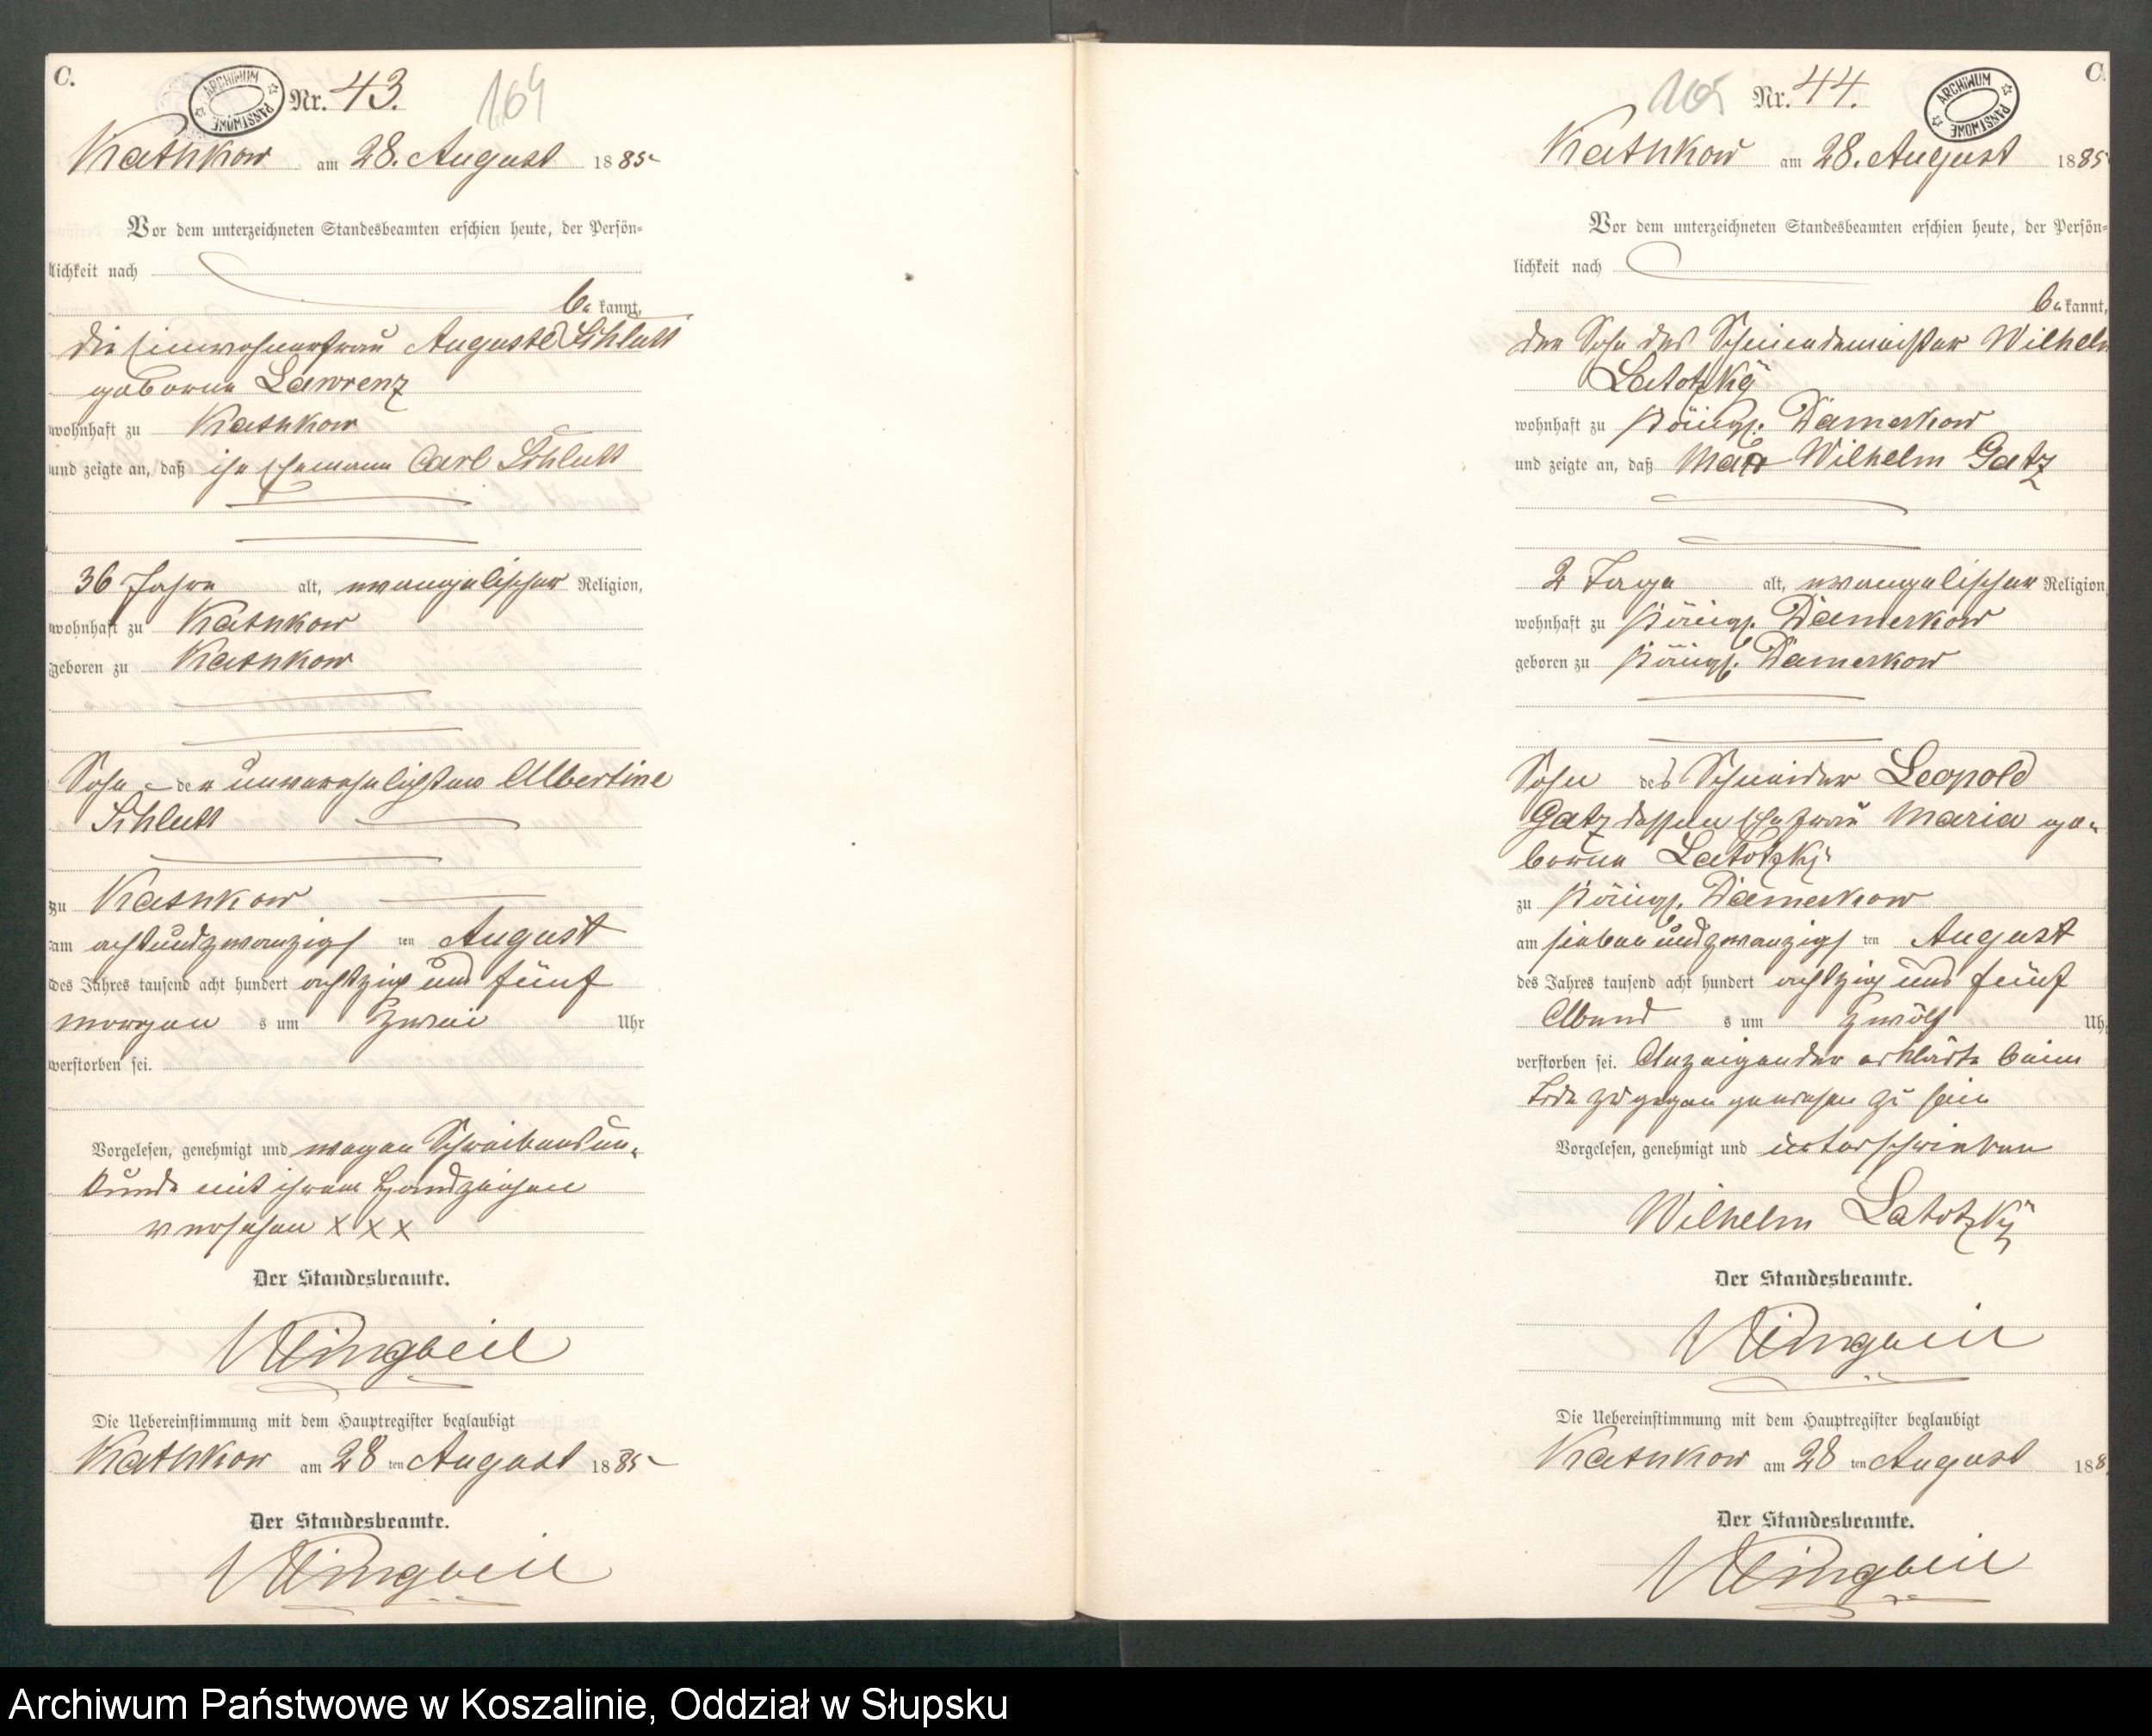 C.
ARCHIWUM PAŃSTWOWE
Nr. 43.
164
Kathkow am 28. August 1885
Vor dem unterzeichneten Standesbeamten erschien heute, der Persön=
lichkeit nach
be kannt,
die Einwohnerfrau Auguste Schlutt
geborne Lawrenz
wohnhaft zu Kathkow
und zeigte an, daß ihr Ehemann Carl Schlutt
36 Jahre alt, evangelischer Religion,
wohnhaft zu Kathkow
geboren zu Kathkow
Sohn der unverehelichten Albertine
Schlutt
zu Kathkow
am achtundzwanzigsten August
des Jahres tausend acht hundert achtzig und fünf
morgen s um zwei Uhr
verstorben sei.
Vorgelesen, genehmigt und wegen Schreibensun-
kunde mit ihrem Handzeichen
versehen x x x
Der Standesbeamte.
Klingbeil
Die Uebereinstimmung mit dem Hauptregister beglaubigt
Kathkow am 28 ten August 1885
Der Standesbeamte.
Klingbeil
C.
ARCHIWUM PAŃSTWOWE
165
Nr. 44.
Kathkow am 28. August 1885
Vor dem unterzeichneten Standesbeamten erschien heute, der Persön=
lichkeit nach
be kannt,
der Sohn des Wilhelm
Latotzky
wohnhaft zu Königl. Damerkow
und zeigte an, daß Max Wilhelm Gatz
2 Tage alt, evangelischer Religion,
wohnhaft zu Königl. Damerkow
geboren zu Königl. Damerkow
Sohn des Schneider Leopold
Gatz dessen Ehefrau Maria ge-
borene Latotzky
zu Königl. Damerkow
am siebenundzwanzigsten August
des Jahres tausend acht hundert achtzig und fünf
Abend s um zwölf Uh
verstorben sei. Anzeigender erklärte beim
Tode zugegen gewesen zu sein
Vorgelesen, genehmigt und unterschrieben
Wilhelm Latotzky
Der Standesbeamte.
Klingbeil
Die Uebereinstimmung mit dem Hauptregister beglaubigt
Kathkow am 28 ten August 188
Der Standesbeamte.
Klingbeil
Archiwum Państwowe w Koszalinie, Oddział w Słupsku